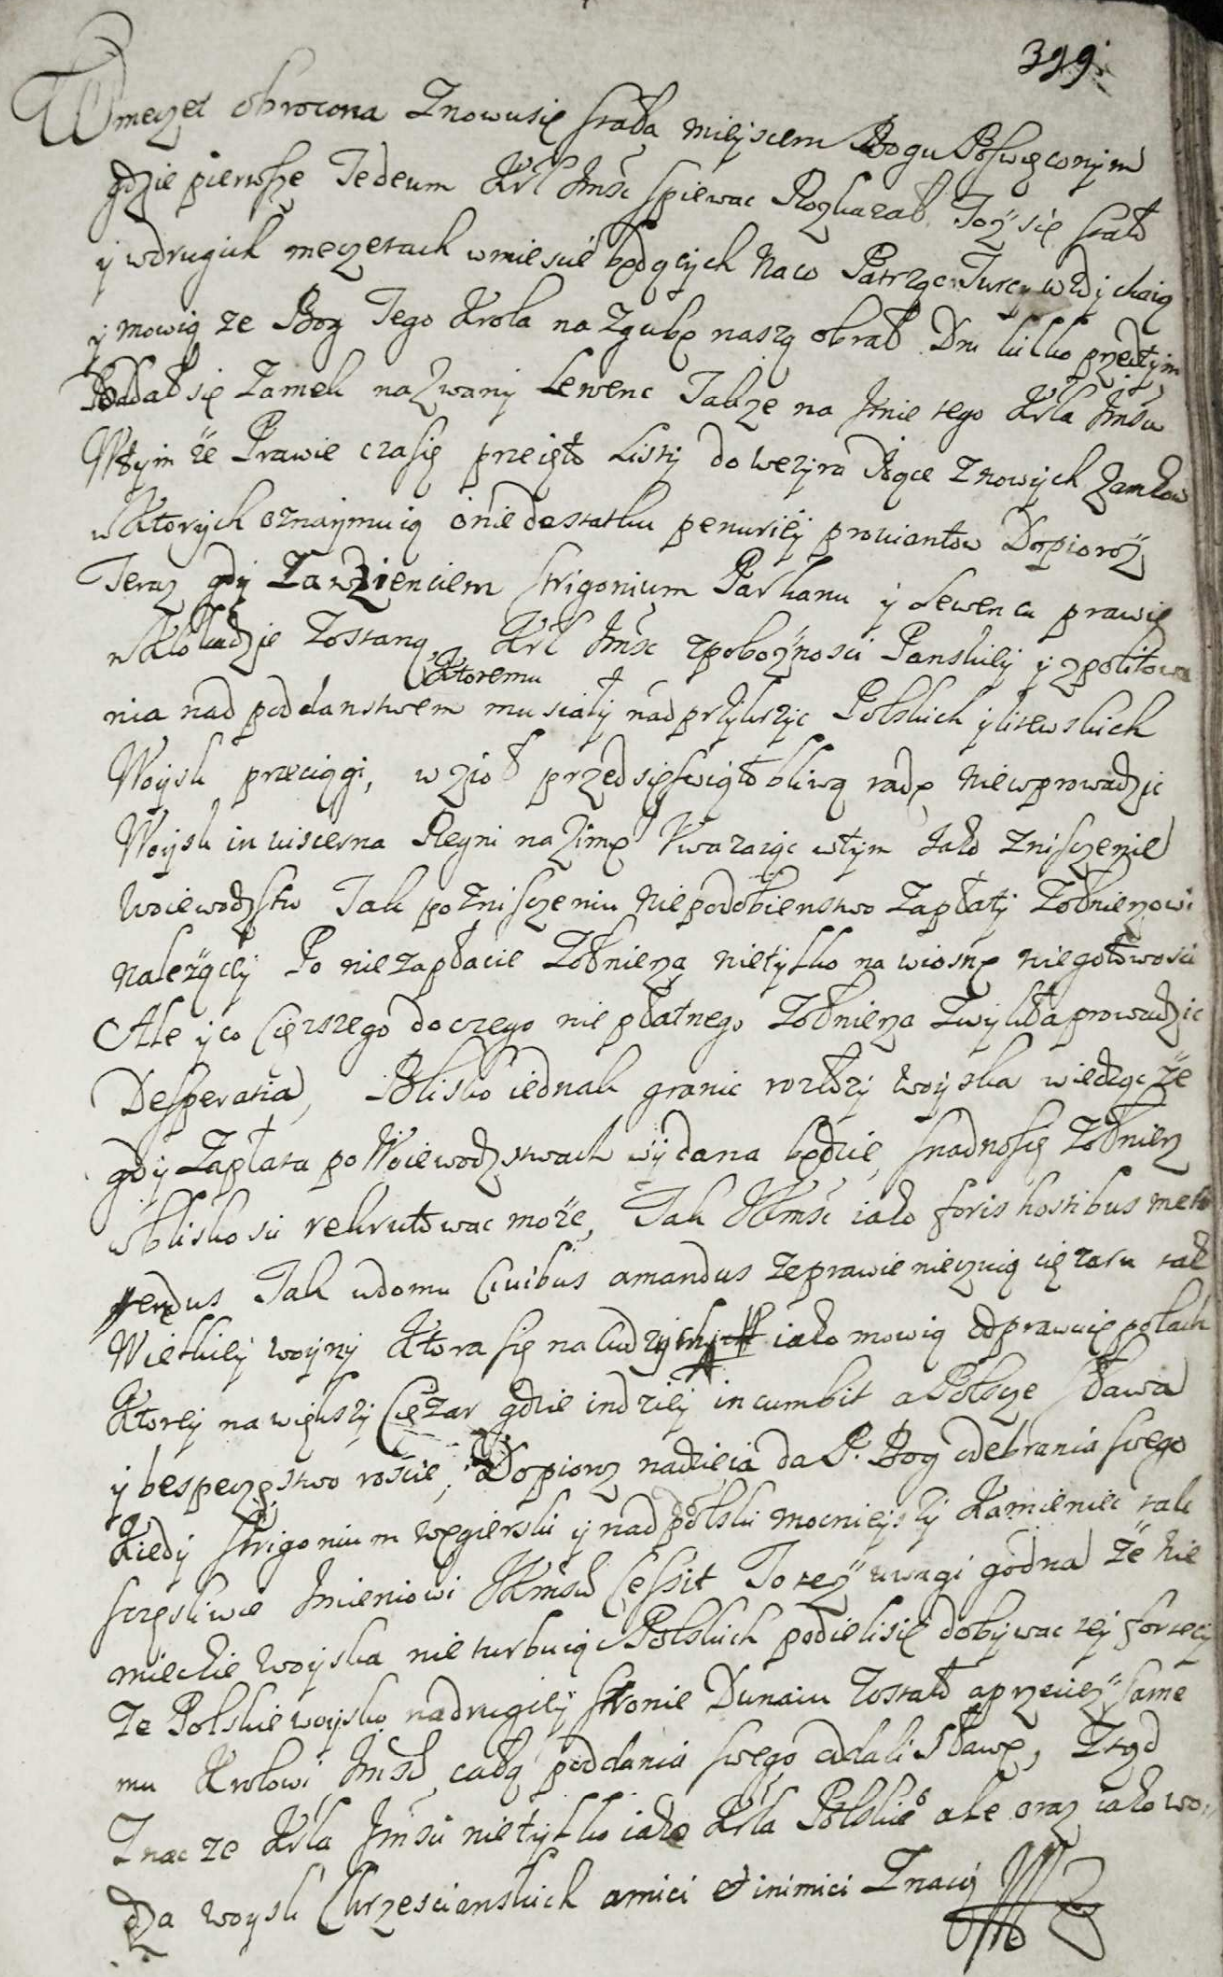 399.
W meczet obrocona Znowusię stała mieyscem Bogu Poswięconym
gdzie pierwsze Tedeum Krl Jmśc spiewac Rozkazał Toż się stało
y wdrugich meczetach wmiescie będących Naco Patrząc Turcy wzdychaią
y mowią ze Bog Tego Krola na Zgubę naszą obrał Dni kilko przedtym
Poddał się Zamek nazwany Lewenc Takze na Jmie tego Krla Jmśći
Wtym że Prawie czasię przeięto Listy do Wezyra Idące Z nowych Zamkow
w Ktorych oznaymuią o niedostatku penuriey prowiantow Dopiroż
Teraz gdy Za wzienciem Strigonium Parkanu y Lewencu prawie
w Kłotudzie Zostaną, Krl Jmśc zpobożnosci Panskiey y zpolitowa
Ktoremu
nia nad poddanstwem musiały nadprzykrzyc Polskich y litewskich
Woysk przeciągi, wzioł przedsię swiątobliwą radę Niewprowadzic
Woysk in viscerna Regni na Zimę Uwazaiąc wtym Jako Znisczenie
Woiewodztw Tak po Znisczeniu Niepodobienstwo Zapłaty Zołnierzowi
należący Po niezapłacie Zołnierza nietylko na wiosnę niegotowosci
Ale y co Cięzszego do czego niepłatnego Zołnierza Zwykła prowadzic
Desperatia, Blisko iednak granic rozłozy woyska wiedząc że
gdy Zapłata po Woiewodztwach wydana będzie, snadno się Zołnierz
w bliskosci rekrutowac może, Tak JKmśc iako foris hostibus metu
endus Tak w domu Civibus amandus ze prawie nieczuią cięzaru tak
Wielkiey woyny Ktora się na Cudzych iako mowią odprawuie polach
Ktorey nawiększy Ciężar gdzie indziey incumbit a Polszcze sława
y bespieczęstwo roscie, Dopiroz nadzieia da P. Bog odebrania swego
Kiedy Strigonium węgierski y nad polski mocnieyszy Kamieniec tak
szczęsliwie Jmieniowi JKmśći Cessit To też uwagi godna że Nie
mieckie woyska nie turbuiąc Polskich podielisię dobywac tey fortecy
Ze Polskie woysko na drugiey stronie Dunaiu Zostało a przeciez same
mu Krolowi Jmśći całą poddania swego oddali sławę, Ztąd
Znac ze Krla Jmśći nietylko iako Krla Polskie° ale oraz iako wo
dza woysk Chrzescianskich amici et inimici Znaią